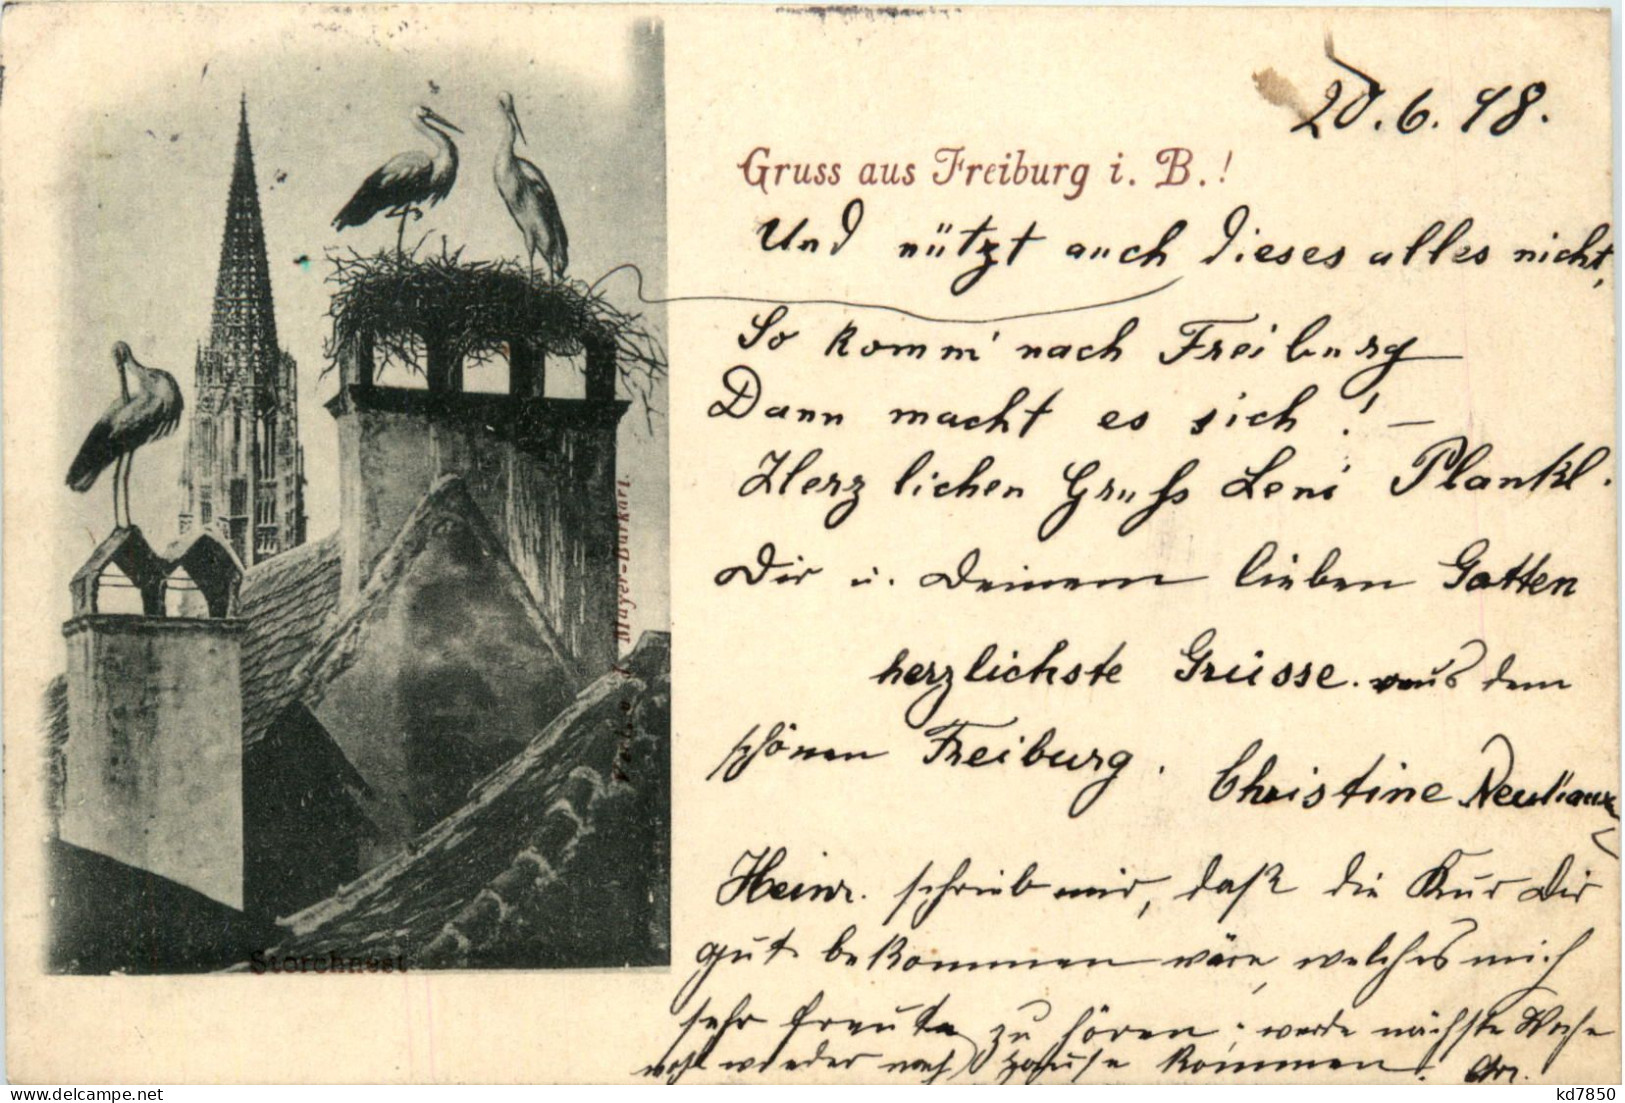 20.6.98.
Gruss aus Freiburg i. B.!
Und nützt auch dieses alles nicht,
So komm' nach Freiburg
Dann macht es sich! —
Herzlichen Gruß Leni Plankl.
Dir u. Deinem lieben Gatten
herzlichste Grüsse. aus dem
schönen Freiburg.
Christine
Heinr. schrieb mir, daß die Kur Dir
gut bekommen wäre, welches mich
sehr freute zu hören; werde nächste Woche
wohl wieder nach Hause kommen.
Mayer-Burkart.
Storchnest
kd7850